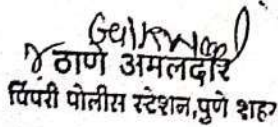 ठाणे अमलदार
पिंपरी पोलीस स्टेशन,पुणे शहर